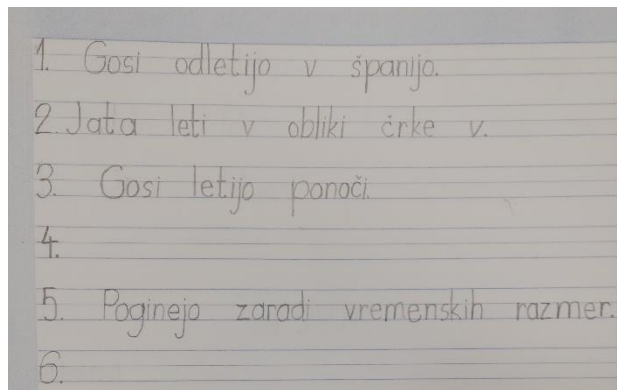 1. Gosi odletijo v španijo.
2. Jata leti v obliki črke v.
3. Gosi letijo ponoči.
4.
5. Poginejo zaradi vremenskih razmer.
6.